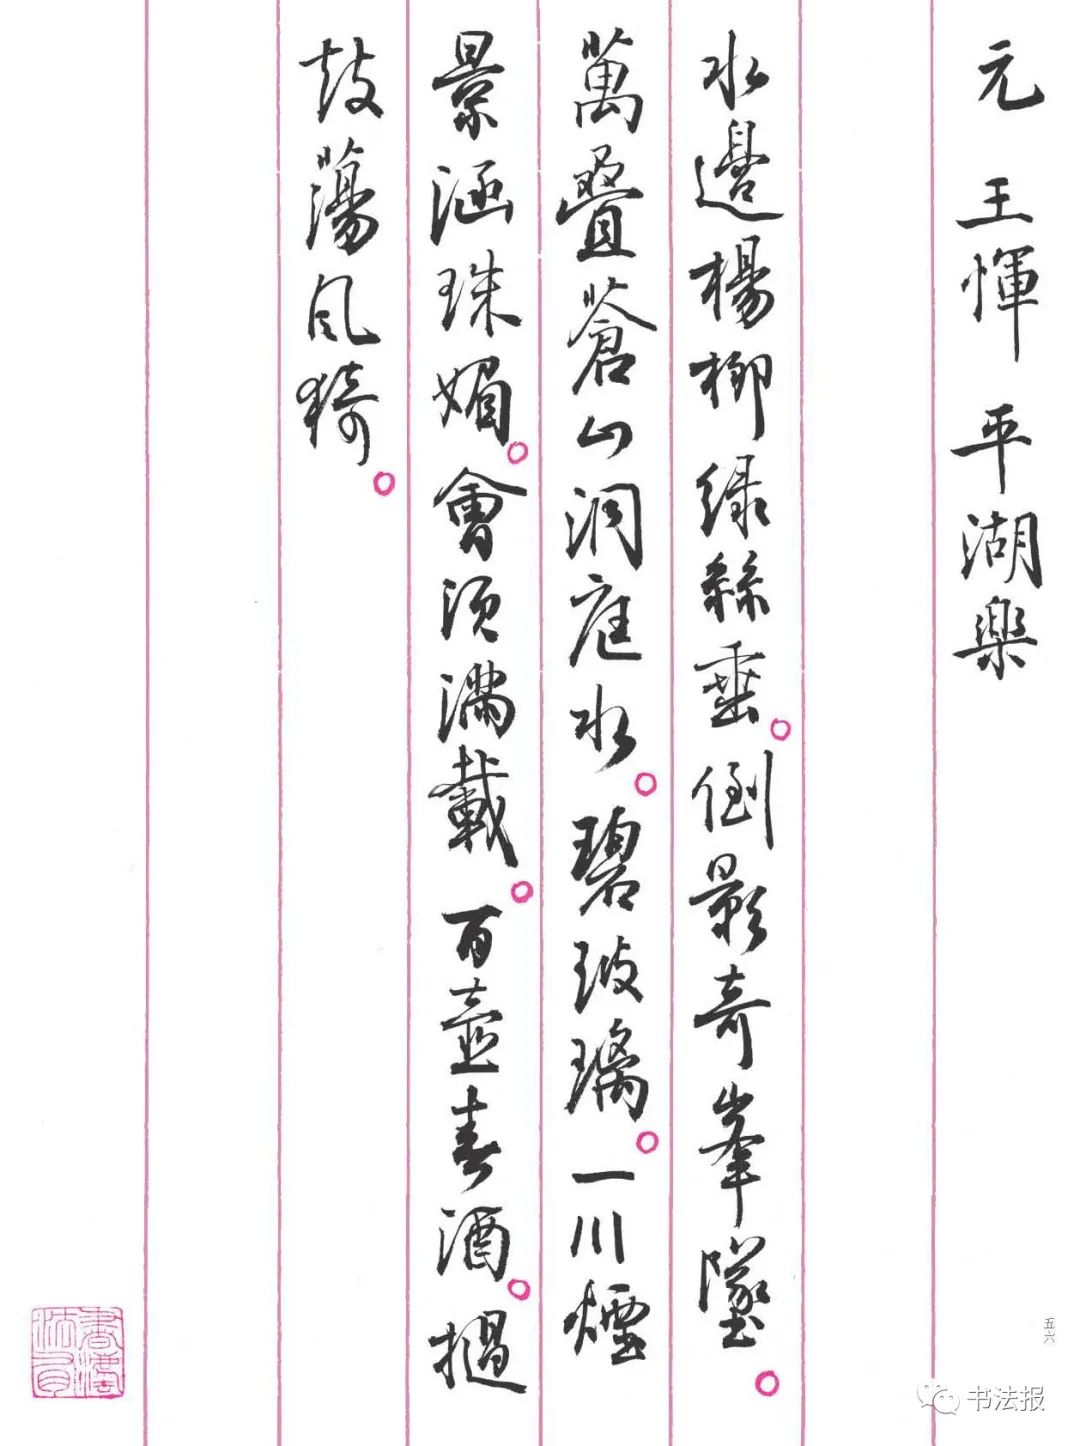 元 王惲 平湖樂
水邊楊柳綠絲垂。倒影奇峯墜。
萬疊蒼山洞庭水。碧玻璃。一川煙
景涵珠媚。會須滿載。百壺春酒。撾
鼓蕩風猗。
五六
书法报